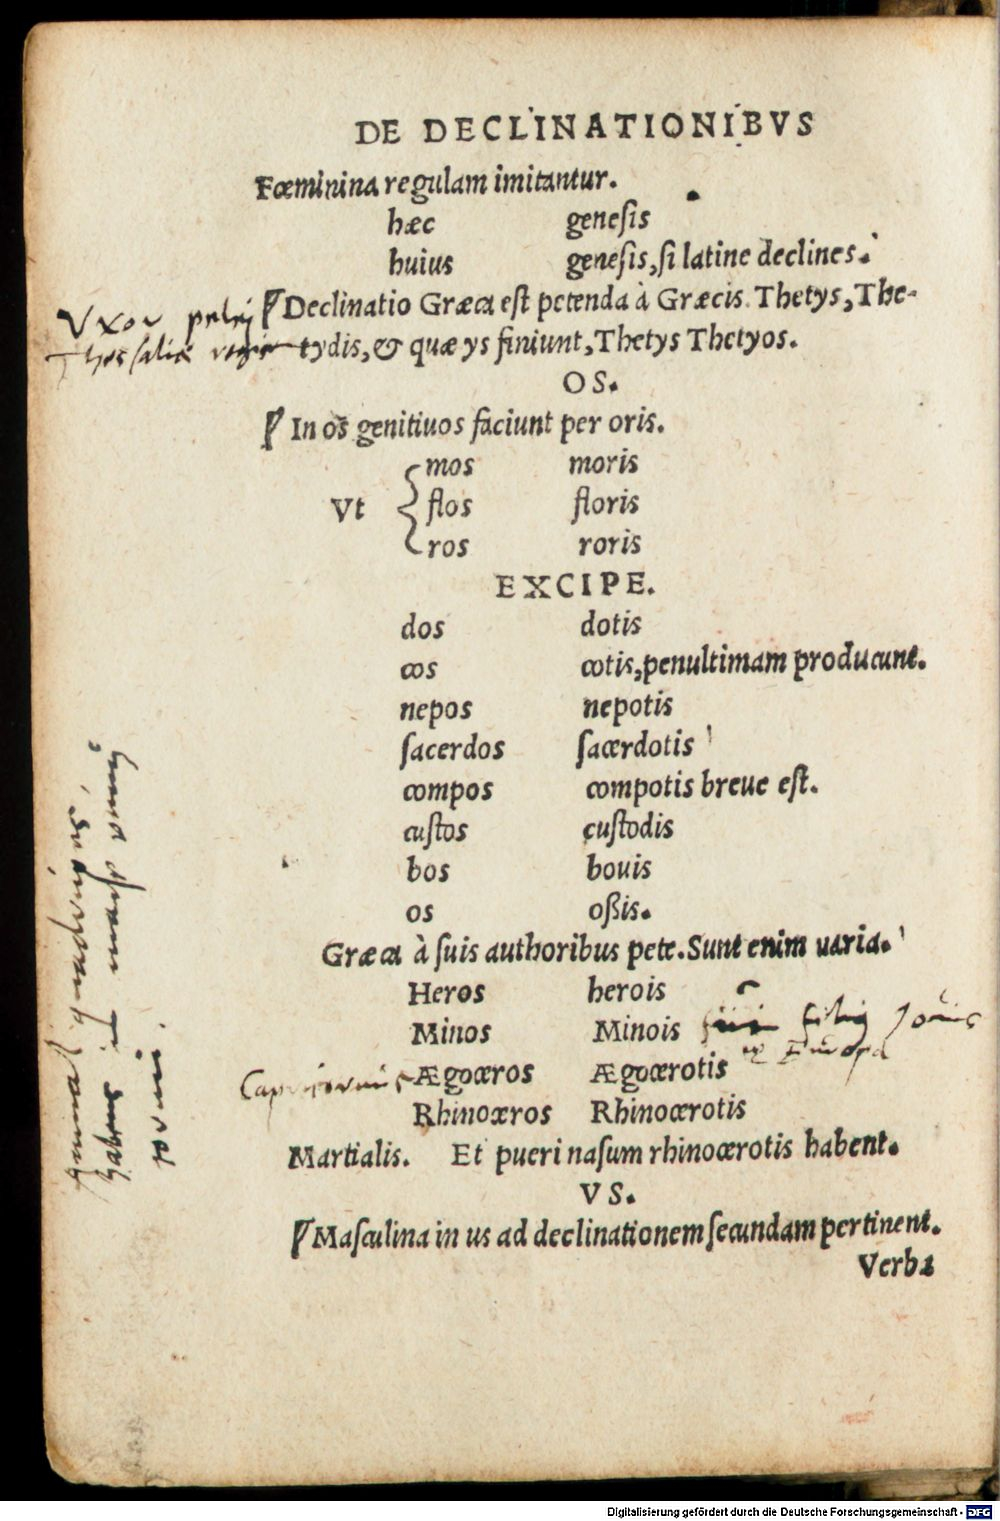 DE DECLINATIONIBVS
Fœminina regulam imitantur.
hæc genesis
huius genesis, si latine declines.
Declinatio Græca est petenda à Græcis. Thetys, The-
Vxor pelei
tydis, & quæ ys finiunt, Thetys Thetyos.
Thessaliæ regis
OS.
In os genitiuos faciunt per oris.
mos moris
Vt flos floris
ros roris
EXCIPE.
dos dotis
cos cotis, penultimam producunt.
nepos nepotis
sacerdos sacerdotis
compos compotis breue est.
custos custodis
bos bouis
os oßis.
Græca à suis authoribus pete. Sunt enim uaria.
Heros herois
Minos Minois
filius Jouis
Europa
Capricornus Ægoceros Ægocerotis
Rhinoceros Rhinocerotis
Martialis. Et pueri nasum rhinocerotis habent.
VS.
Masculina in us ad declinationem secundam pertinent.
Verba
Digitalisierung gefördert durch die Deutsche Forschungsgemeinschaft - DFG